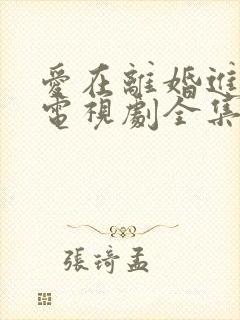 愛在離婚進
電視劇全集
張琦孟